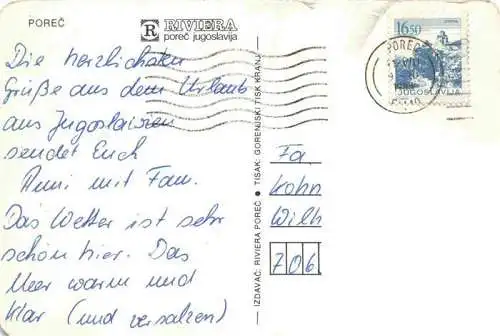 POREČ
RIVIERA
poreč jugoslavija
Die herzlichsten
Grüße aus dem Urlaub
aus Jugoslawien
sendet Euch
mit Fam.
Das Wetter ist sehr
schön hier. Das
Meer warm und
klar (und versalzen)
IZDAVAČ: RIVIERA POREČ ● TISAK: GORENJSKI TISK KRANJ
16.50
JUGOSLAVIJA
POREČ
Fa
Kohn
Wilh
706